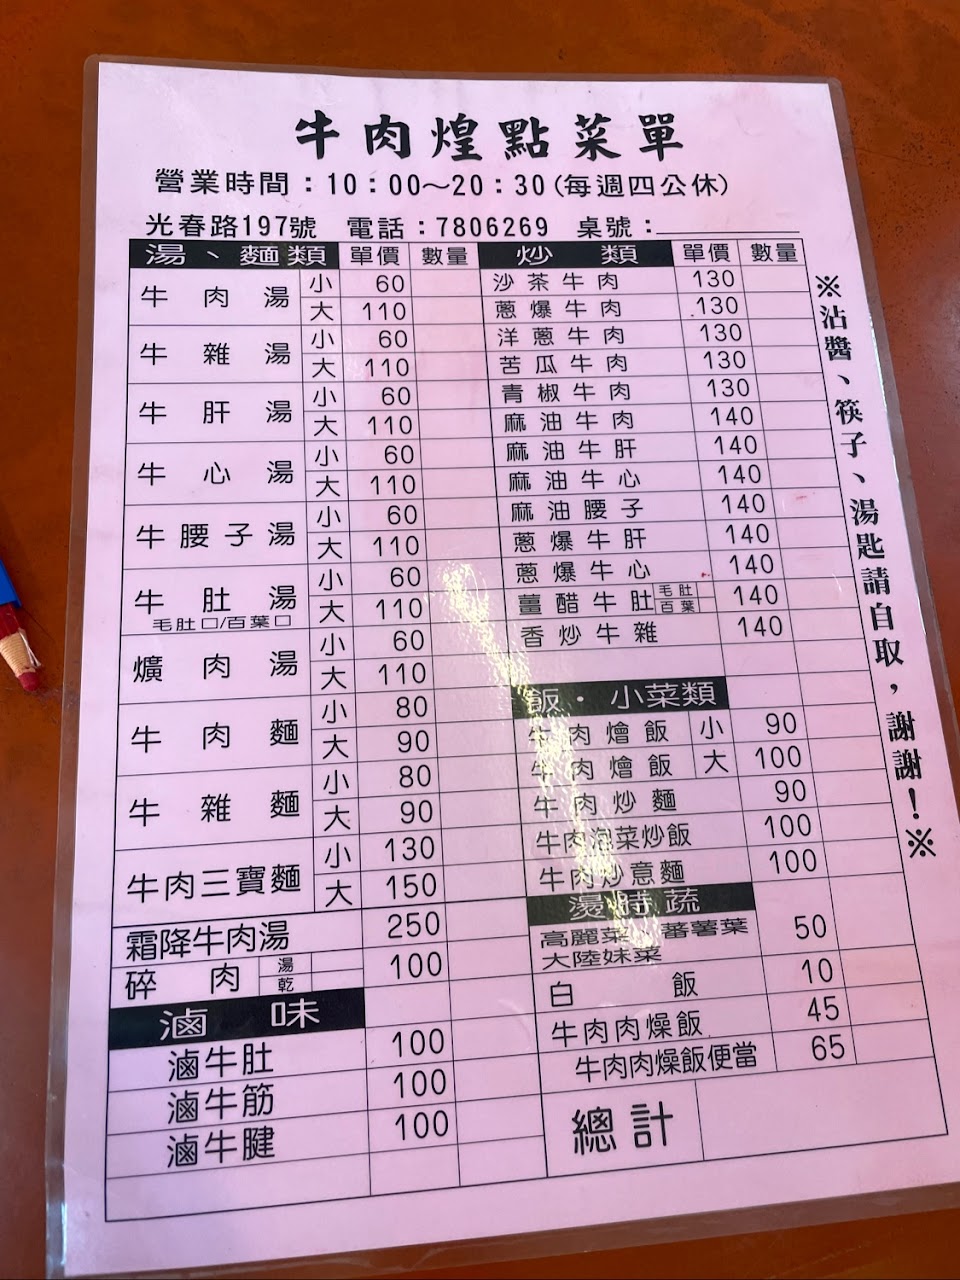 牛肉煌點菜單
營業時間：10：00～20：30(每週四公休)
光春路197號 電話：7806269 桌號：
湯、麵類 單價 數量
牛肉湯 小 60
大 110
牛雜湯 小 60
大 110
牛肝湯 小 60
大 110
牛心湯 小 60
大 110
牛腰子湯 小 60
大 110
牛肚湯 小 60
毛肚□/百葉□ 大 110
爌肉湯 小 60
大 110
牛肉麵 小 80
大 90
牛雜麵 小 80
大 90
牛肉三寶麵 小 130
大 150
霜降牛肉湯 250
碎肉 湯 乾 100
滷味
滷牛肚 100
滷牛筋 100
滷牛腱 100
炒類 單價 數量
沙茶牛肉 130
蔥爆牛肉 130
洋蔥牛肉 130
苦瓜牛肉 130
青椒牛肉 130
麻油牛肉 140
麻油牛肝 140
麻油牛心 140
麻油腰子 140
蔥爆牛肝 140
蔥爆牛心 140
薑醋牛肚 毛肚 百葉 140
香炒牛雜 140
飯・小菜類
牛肉燴飯 小 90
牛肉燴飯 大 100
牛肉炒麵 90
牛肉泡菜炒飯 100
牛肉炒意麵 100
燙時蔬
高麗菜、蕃薯葉
大陸妹菜 50
白飯 10
牛肉肉燥飯 45
牛肉肉燥飯便當 65
總計
※沾醬、筷子、湯匙請自取，謝謝！※